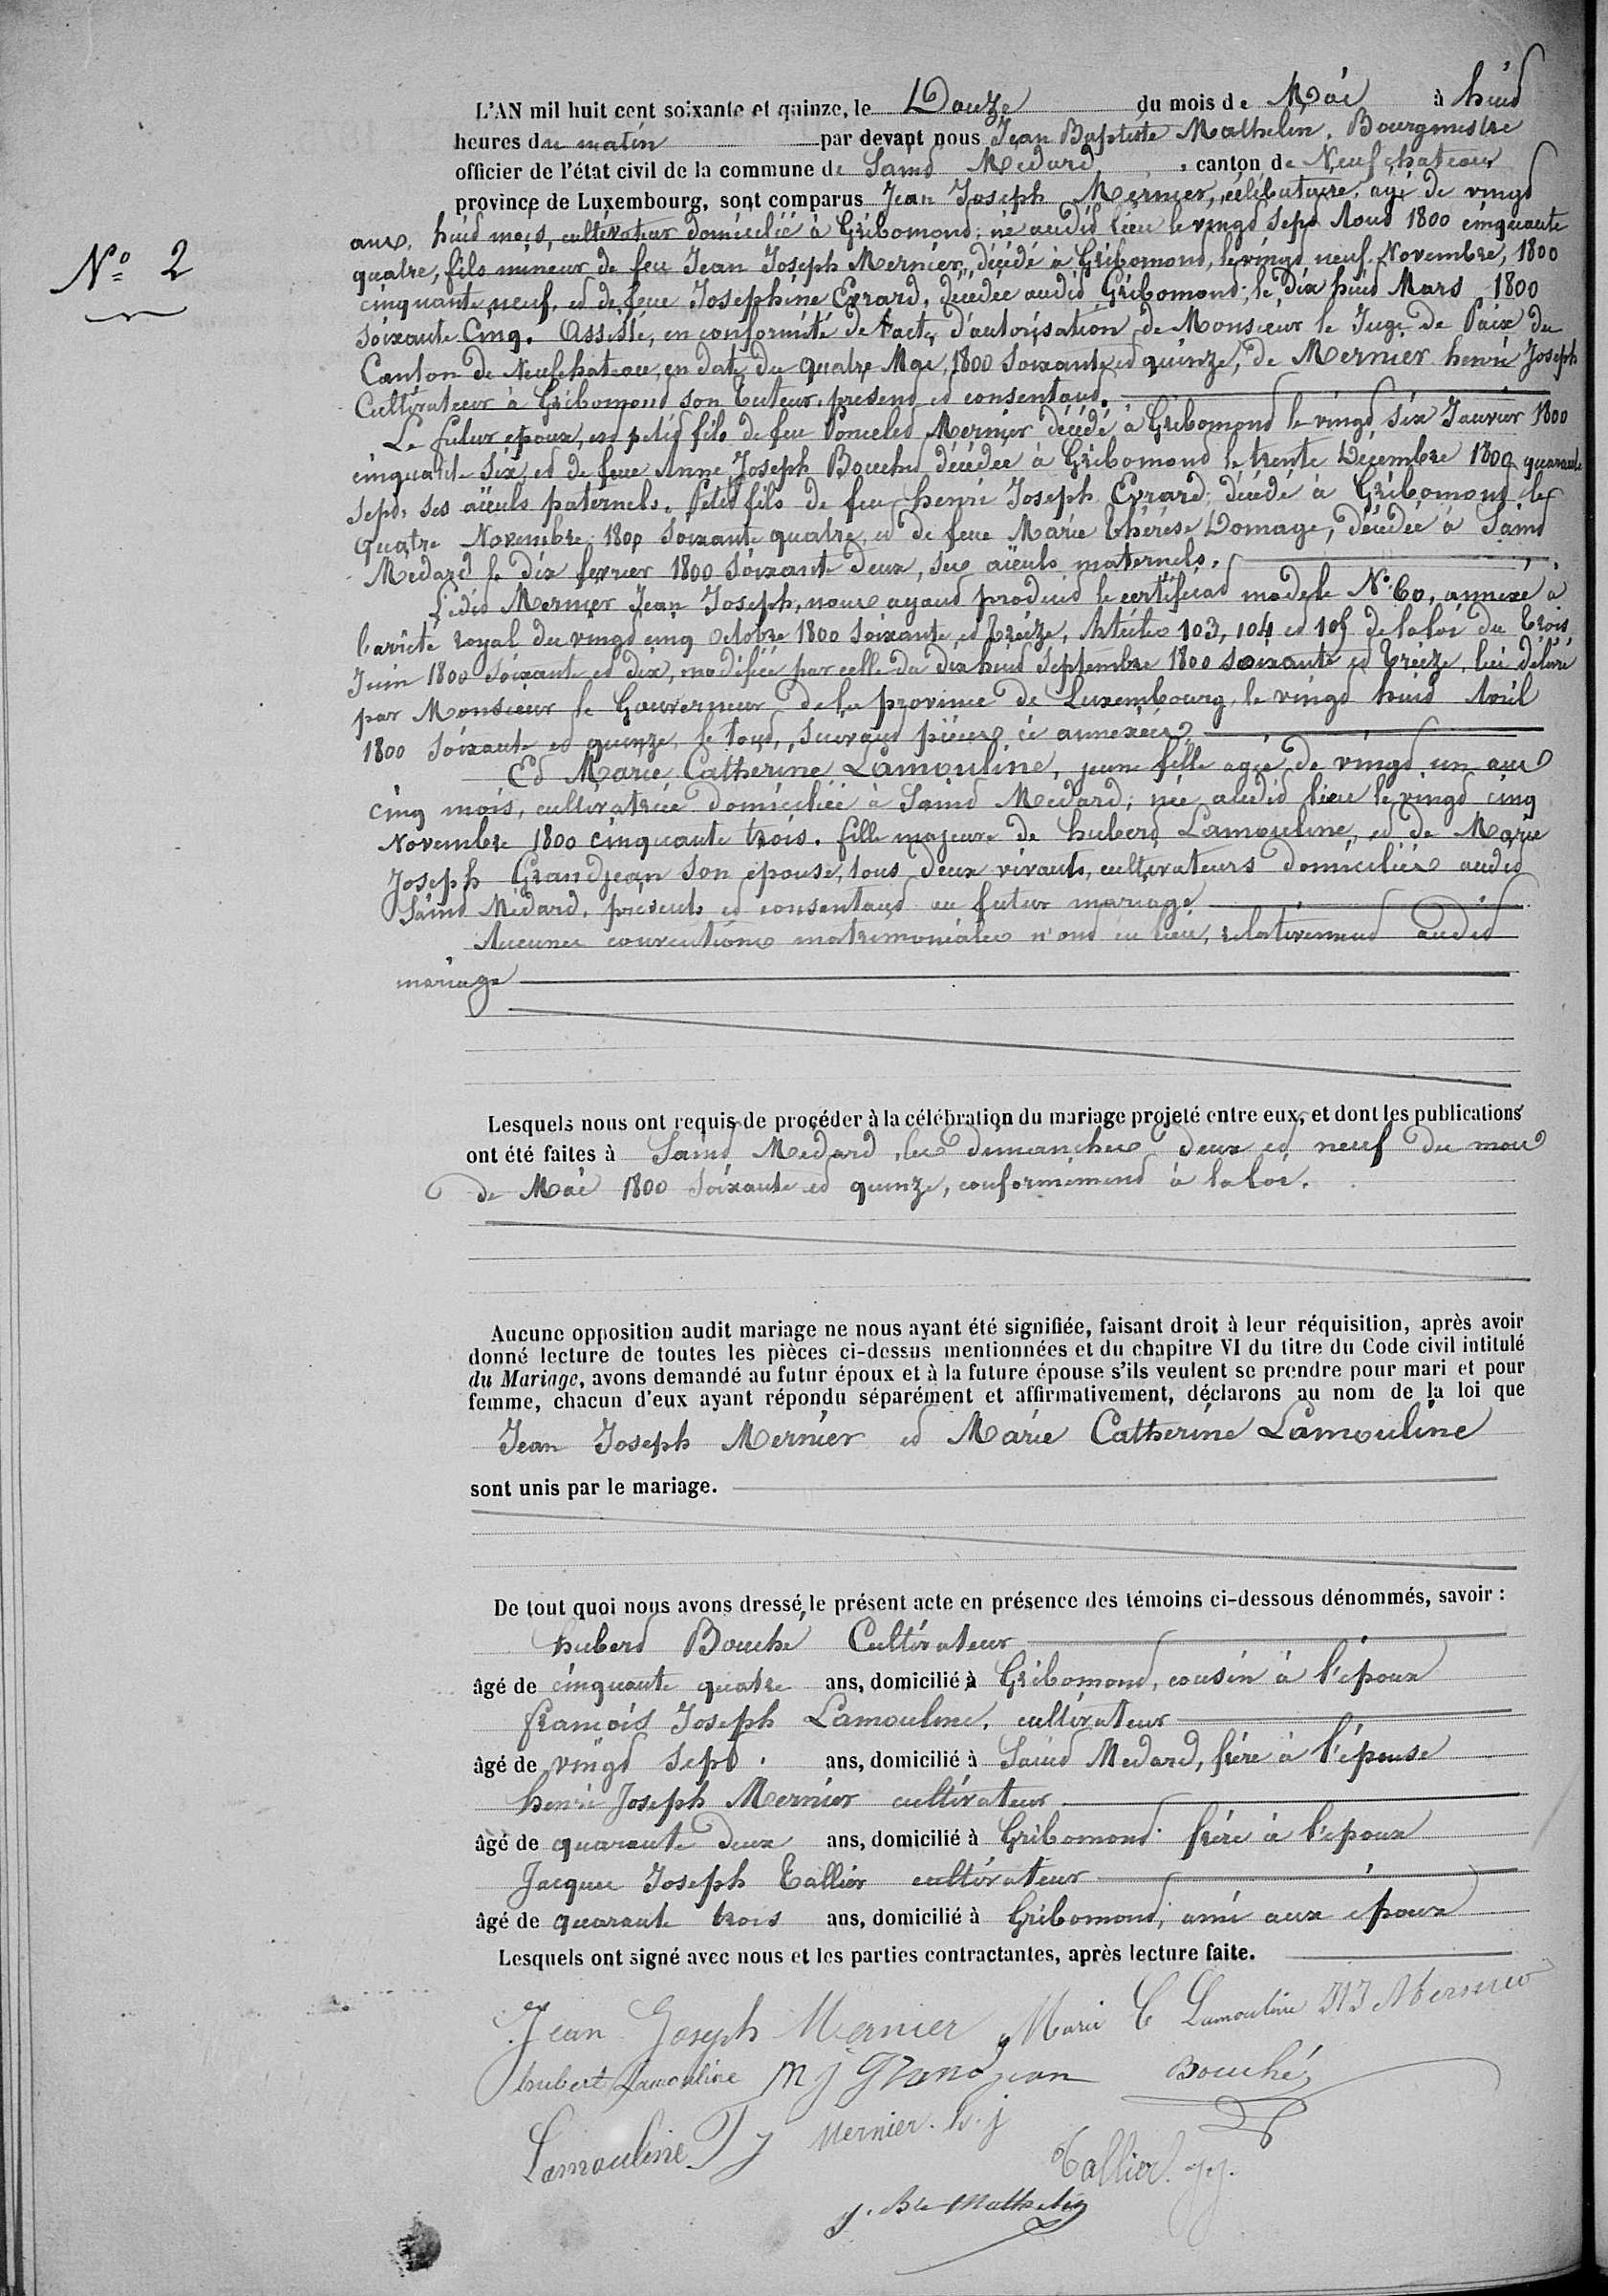 L'AN mil huit cent soixante et quinze, le Douze du mois de Mai à huid
heures du matin par devant nous Jean Baptiste Mathelin, Bourgmestre
officier de l'état civil de la commune de Saind Medard, canton de Neufchateau
province de Luxembourg, sont comparus Jean Joseph Mernier, célibataire, agé de vingd
No 2
ans, huid mois, cultivateur domicilié à Gribomond; né audid lieu le vingd sepd Aoud 1800 cinquante
quatre, fils mineur de feu Jean Joseph Mernier, décédé à Gribomond, le vingd neuf Novembre, 1800
cinquante neuf, ed de feue Josephine Evrard, décédée audid Gribomond; le dix huid Mars 1800
soixante Cinq. Assisté, en conformité de l'acte d'autorisation de Monsieur le Juge de Paix du
Canton de Neufchateau, en date du quatre Mai, 1800 soixante ed quinze, de Mernier henri Joseph
Cultivateur à Gribomond son tuteur, présend ed consentand.
Le futur epoux, esd petid fils de feu Ponceled Mernier décédé à Gribomond le vingd six Janvier 1800
cinquante six ed de feue Anne Joseph Bouché décédée à Gribomond le trente Décembre 1800 quarante
sepd, ses aïeuls paternels. Petid fils de feu henri Joseph Evrard, décédé à Gribomond le
quatre Novembre 1800 soixante quatre, ed de feue Marie thérèse Domage, décédée à Saind
Medard le dix fevrier 1800 soixante deux, ses aïeuls maternels.
Ledid Mernier Jean Joseph, nous ayand produid le certificad modele No 60, annexé à
l'arrêté royal du vingd cinq Octobre 1800 soixante ed treize, Articles 103, 104 ed 105 de la loi du trois
Juin 1800 soixante ed dix, modifiée par celle du dix huid Septembre 1800 soixante ed treize, lui délivré
par Monsieur le Gouverneur de la province de Luxembourg, le vingd huid Avril
1800 soixante ed quinze, le toud, suivand pièces ci annexées.
Ed Marie Catherine Lamouline, jeune fille agée de vingd un ans
cinq mois, cultivatrice domiciliée à Saind Medard; née audid lieu le vingd cinq
Novembre 1800 cinquante trois. fille majeure de huberd Lamouline, ed de Marie
Joseph Grandjean son epouse, tous deux vivants, cultivateurs domiciliés audid
Saind Médard, présents ed consentand au futur mariage
Aucunes conventions matrimoniales n'ond eu lieu, relativemend audid
mariage
Lesquels nous ont requis de procéder à la célébration du mariage projeté entre eux, et dont les publications
ont été faites à Saind Medard, les dimanches deux ed neuf du mois
de Mai 1800 soixante ed quinze, conformémend à la loi.
Aucune opposition audit mariage ne nous ayant été signifiée, faisant droit à leur réquisition, après avoir
donné lecture de toutes les pièces ci-dessus mentionnées et du chapitre VI du titre du Code civil intitulé
du Mariage, avons demandé au futur époux et à la future épouse s'ils veulent se prendre pour mari et pour
femme, chacun d'eux ayant répondu séparément et affirmativement, déclarons au nom de la loi que
Jean Joseph Mernier ed Marie Catherine Lamouline
sont unis par le mariage.
De tout quoi nous avons dressé le présent acte en présence des témoins ci-dessous dénommés, savoir :
huberd Bouché Cultivateur
âgé de cinquante quatre ans, domicilié à Gribomond, cousin à l'époux
françois Joseph Lamouline, cultivateur
âgé de vingd sepd ans, domicilié à Saind Medard, frère à l'épouse
henri Joseph Mernier cultivateur
âgé de quarante deux ans, domicilié à Gribomond frére à l'époux
Jacques Joseph Tallier cultivateur
âgé de quarante trois ans, domicilié à Gribomond, ami aux époux
Lesquels ont signé avec nous et les parties contractantes, après lecture faite.
Jean Joseph Mernier Marie C Lamouline Mernier
hubert Lamouline M J Grandjean Bouché
Lamouline F J Mernier. h. j
Tallier. jj.
J. Bte Mathelin